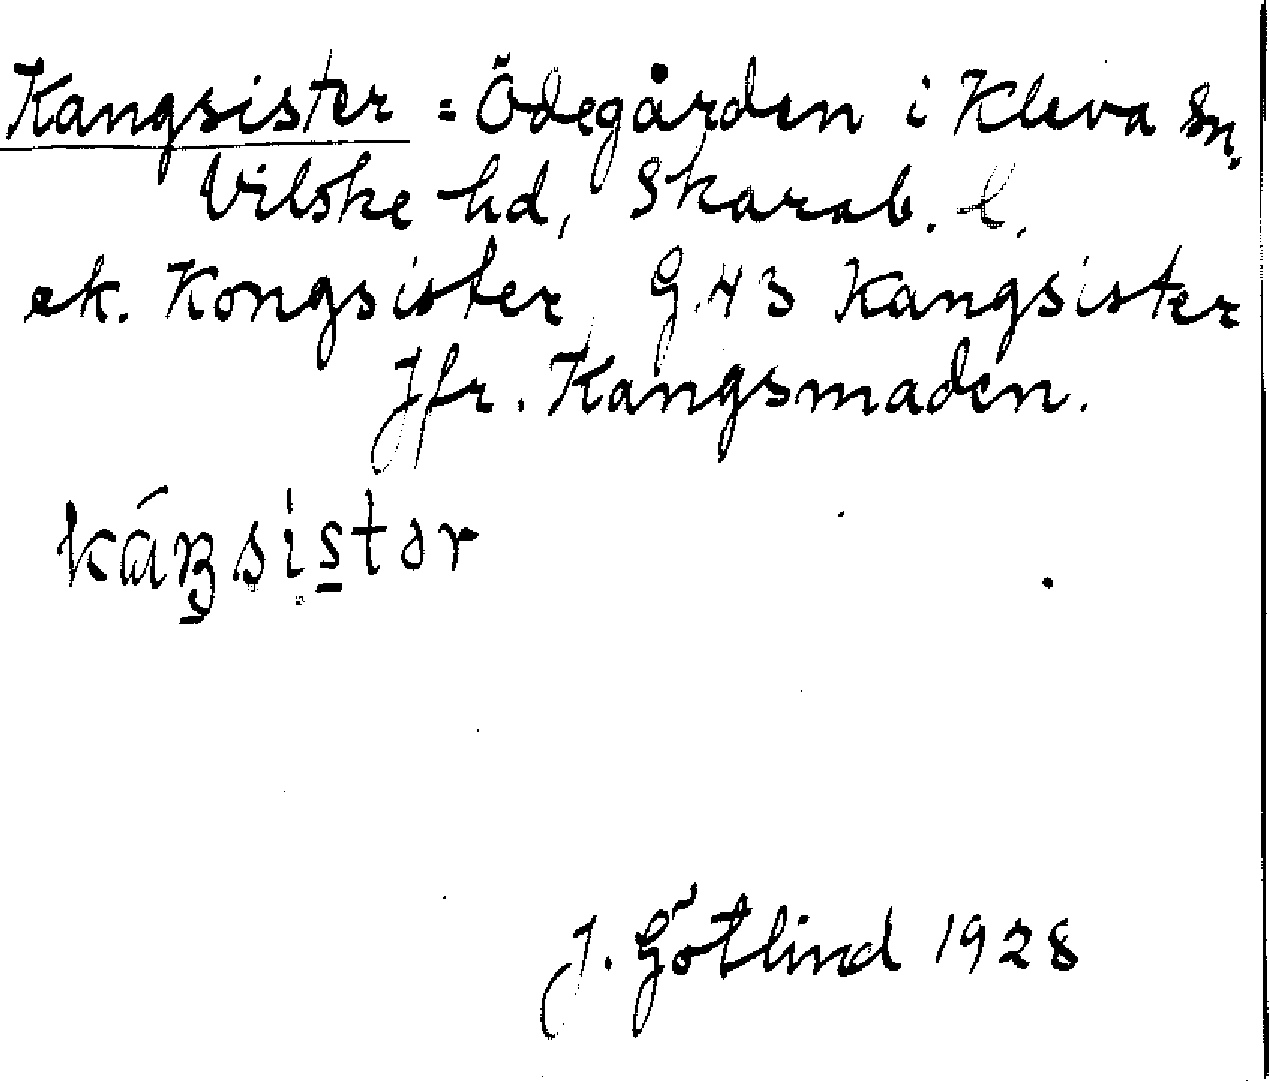 Kangsister = Ödegården i Kleva sn.
Vilske hd, Skarab. l.
ek. Kongsister G 43 Kangsister
Jfr. Kangsmaden.
J. Götlind 1928